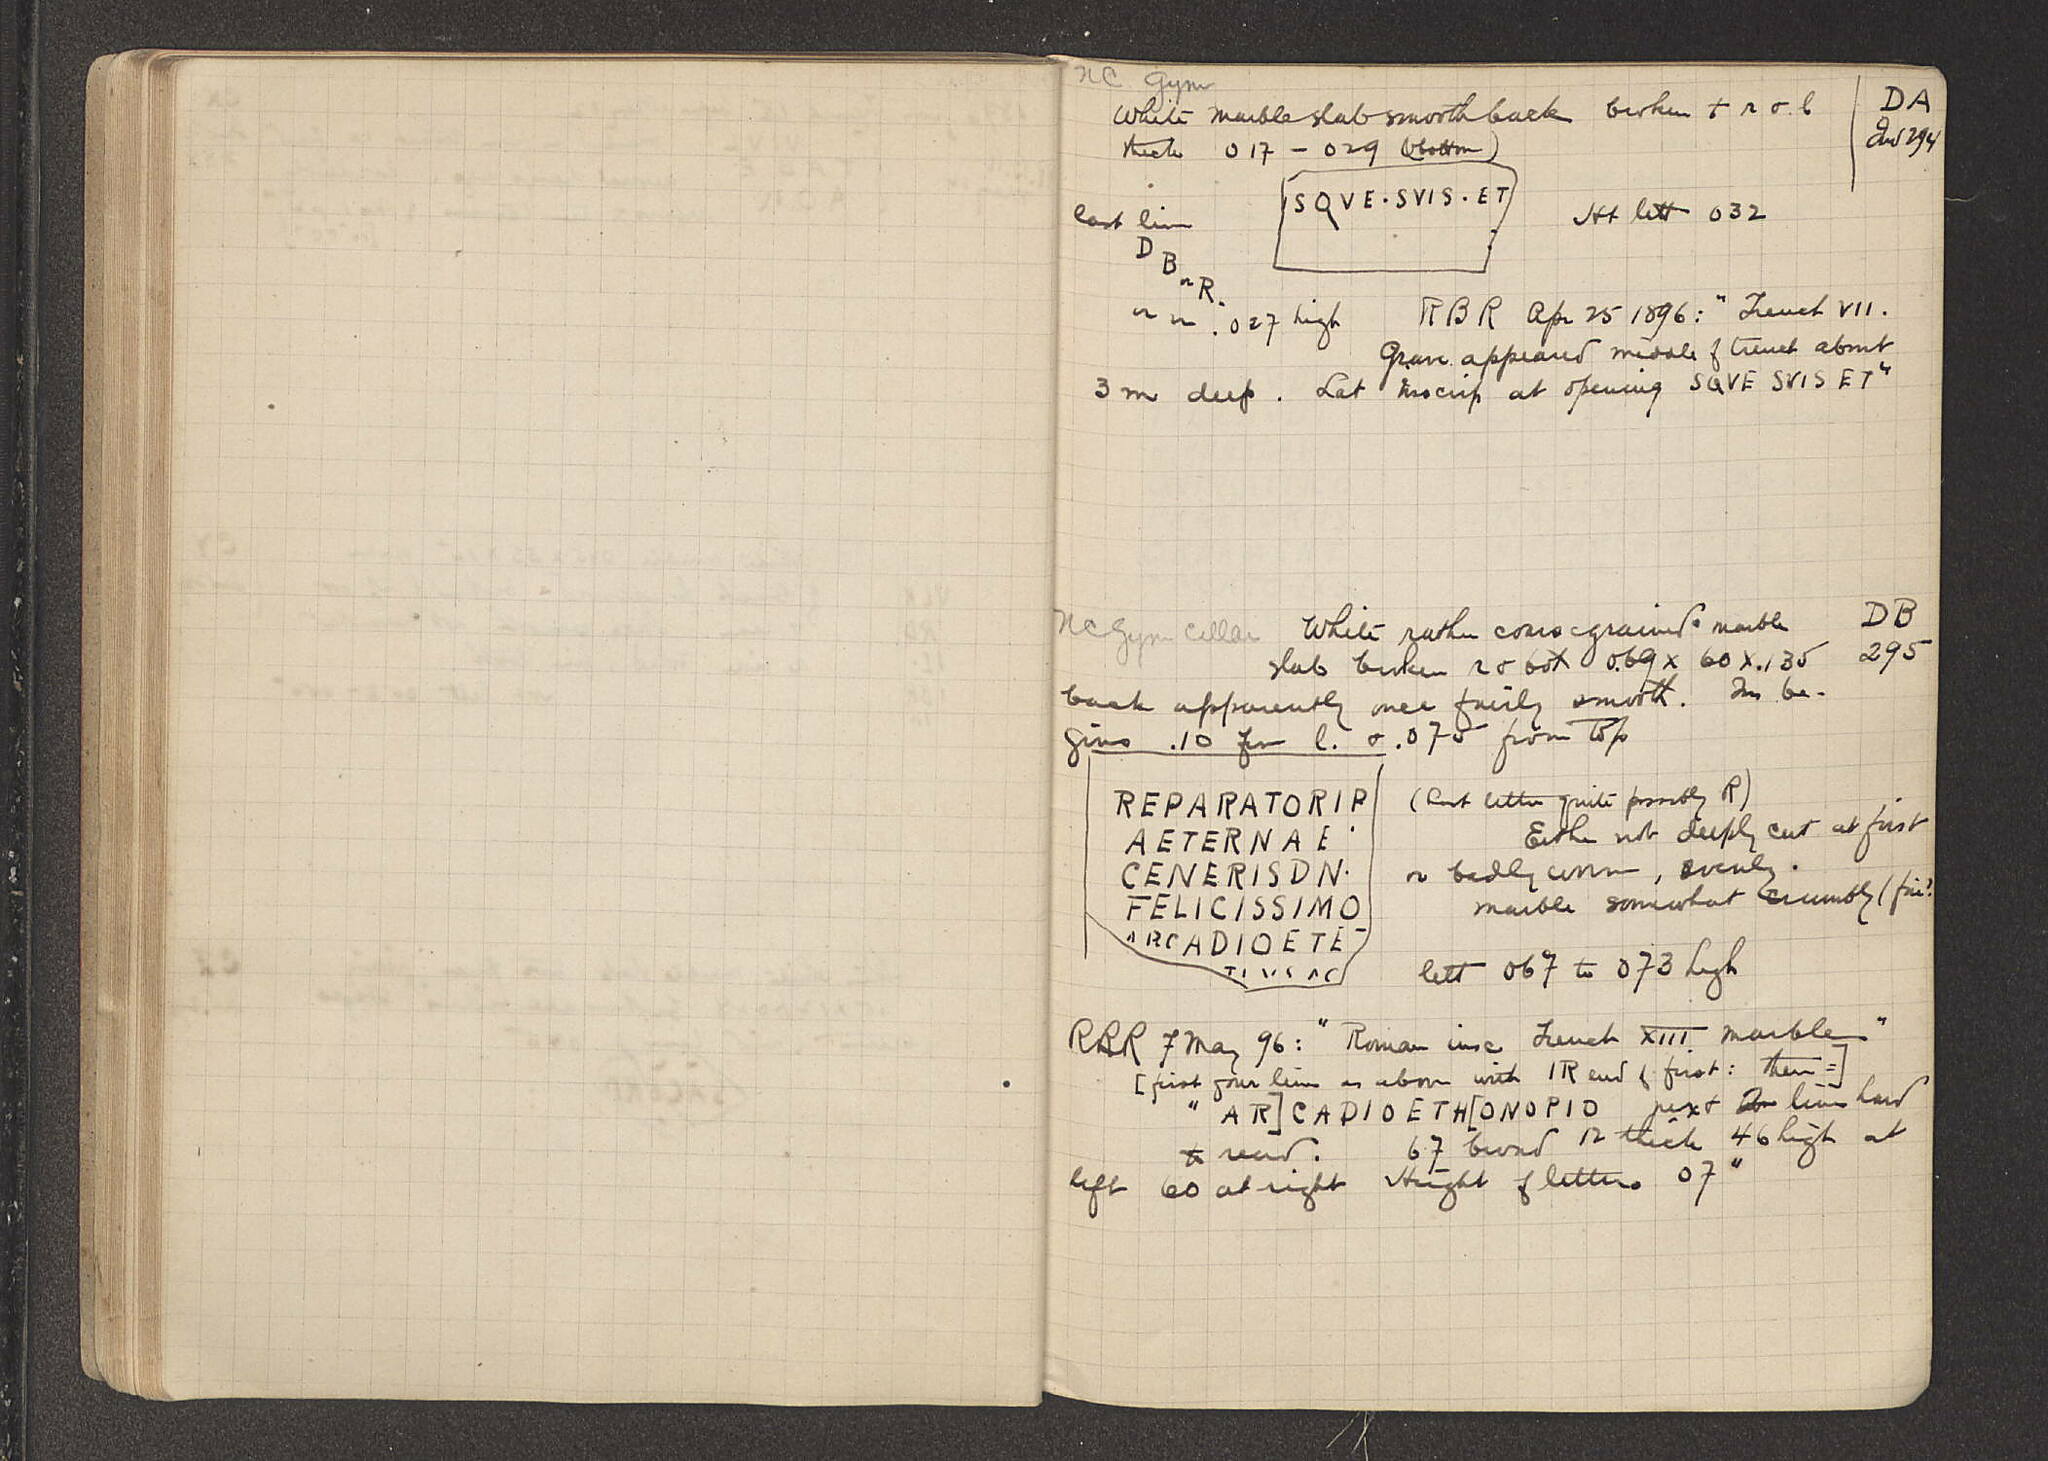 NC Gym
White marble slab smooth back broken t r & l
DA
Inv 294
thick 017 – 029 (bottom)
SQVE·SVIS·ET
last line
Ht lett 032
D
B
or R.
.027 high RBR Apr 25 1896: "Trench VII.
Grave appeared middle of trench about
3 m deep. Lat inscrip at opening SQVE SVIS ET"
NC Gym Cellar White rather coarse grained marble
DB
slab broken r & bot 0.69 x 60 x .135
295
back apparently once fairly smooth. Ins be-
gins .10 from l. & .075 from top
REPARATORIP
(last letter quite possibly R)
AETERNAE
Either not deeply cut at first
CENERISDN·
or badly worn, evenly.
FELICISSIMO
marble somewhat crumbly (fire?
ARCADIOETE
lett 067 to 073 high
RBR 7 May 96: "Roman insc Trench XIII marble"
[first four lines as above with IR end of first: then =]
" AR]CADIOETH[ONOPIO next line hard
to read. 67 broad 12 thick 46 high at
left 60 at right Height of letters 07"